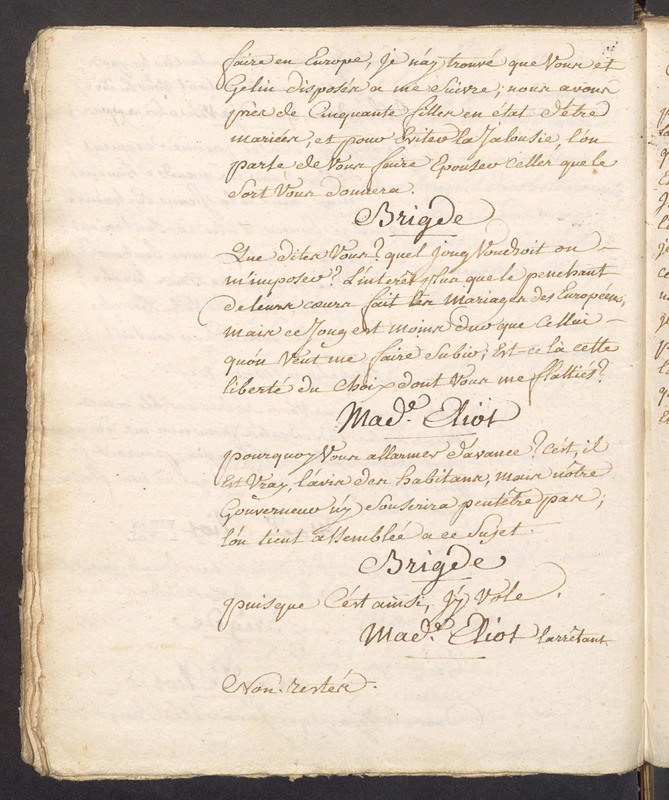 faire en Europe, je n'ay trouvé que Vous et
Gelin disposés a me Suivre; nous avons
près de Cinquante filles en état d'être
mariées, et pour Eviter la Jalousie, l'on
parle de Vous faire Epouser Celles que le
Sort Vous donnera.
Brigde
Que dites Vous? quel joug Voudroit on
m'imposer? L'interêt plus que le penchant
de leurs cœurs fait les Mariages des Européens,
mais ce Joug est moins dur que Celluï
qu'on Veut me faire Subir; Est-ce là cette
liberté du Choix dont Vous me flattiés?
Mad.e Eliot
pourquoy Vous allarmer d'avance? c'est, il
Est Vray, l'avis des habitans, mais nôtre
Gouverneur n'y Souscrira peutêtre pas;
l'on tient assemblée a ce Sujet.
Brigde
puisque C'est ainsi, J'y Vole.
Mad.e Eliot l'arrêtant.
Non. restés.